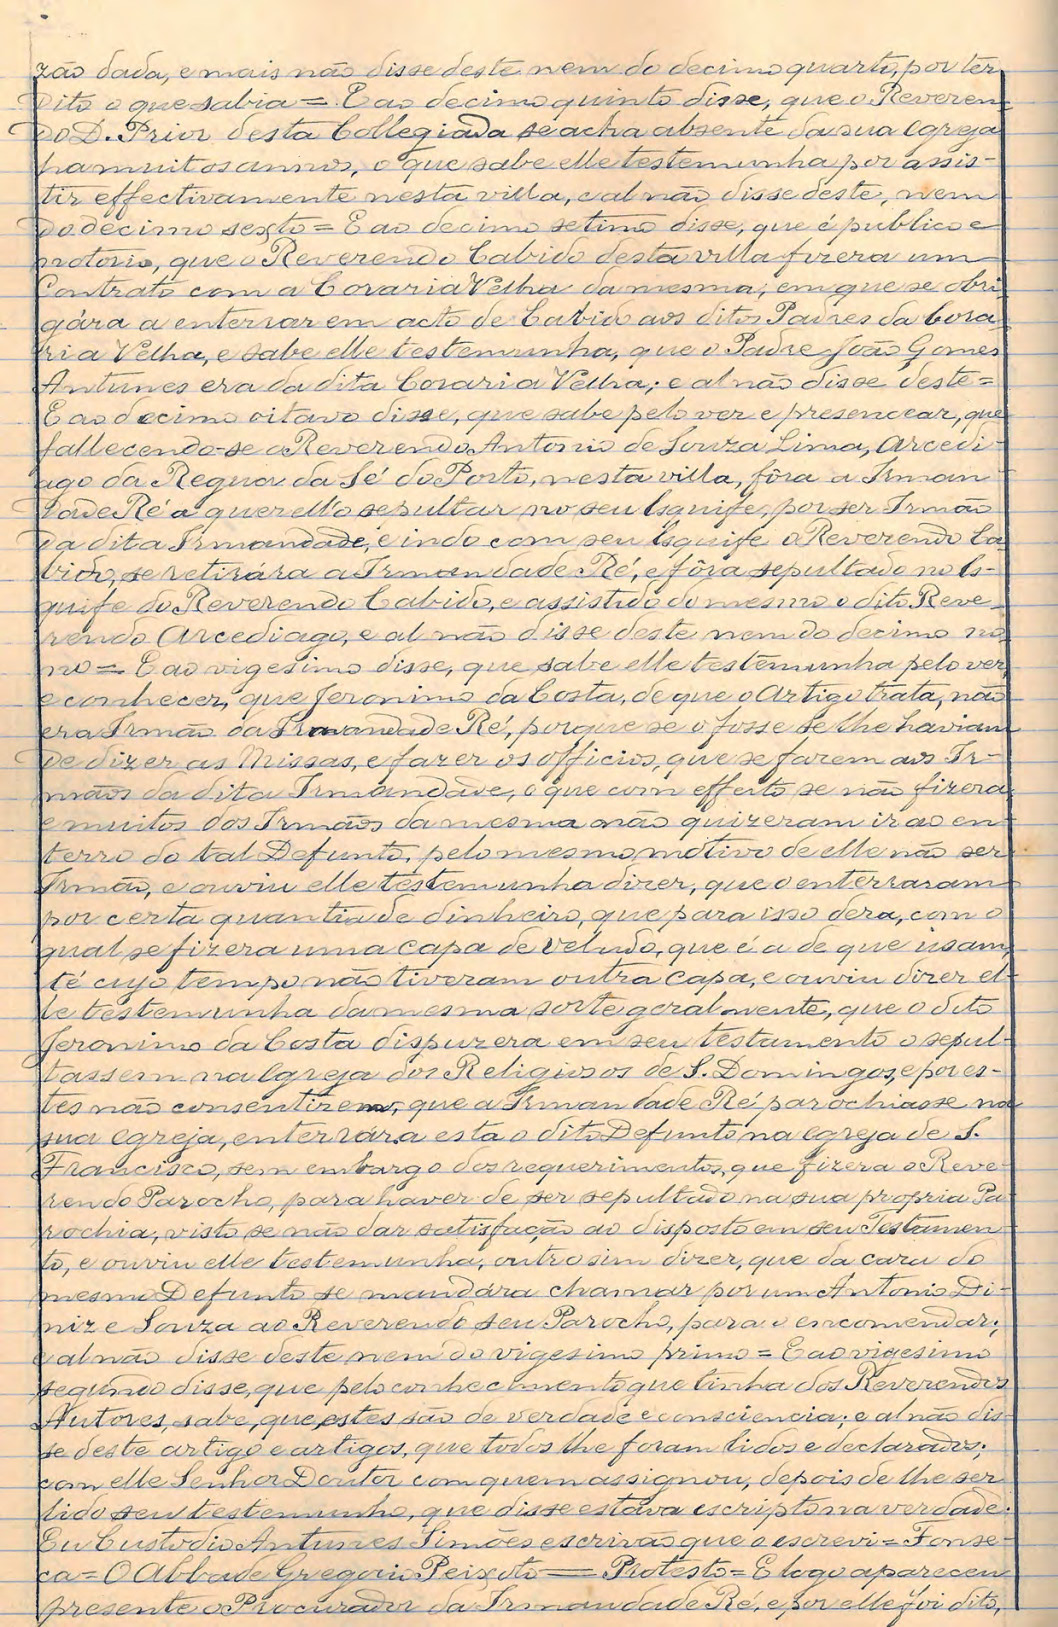 zão dada, e mais não disse deste nem do decimo quarto, por ter
dito o que sabia = E ao decimo quinto disse, que o Reveren-
do D. Prior desta Collegiada se acha absente da sua Egreja
ha muitos annos, o que sabe elle testemunha por assis-
tir effectivamente nesta villa, e al não disse deste, nem
do decimo sexto = E ao decimo setimo disse, que é publico e
notorio, que o Reverendo Cabido desta villa fizera um
Contrato com a Coraria Velha da mesma, em que se obri
gára a enterrar em acto de Cabido aos ditos Padres da Cora
ria Velha, e sabe elle testemunha, que o Padre João Gomes
Antunes era da dita Coraria Velha; e al não disse deste =
E ao decimo oitavo disse, que sabe pelo ver e presencear, que
fallecendo-se o Reverendo Antonio de Souza Lima, Arcedi-
ago da Regua da Sé do Porto, nesta villa, fôra a Irman
dade Ré a querell'o sepultar no seu Esquife, por ser Irmão
da dita Irmandade, e indo com seu Esquife o Reverendo Ca
bido, se retirára a Irmandade Ré, e fôra sepultado no Es-
quife do Reverendo Cabido, e assistido do mesmo o dito Reve-
rendo Arcediago, e al não disse deste nem do decimo no
no = E ao vigesimo disse, que sabe elle testemunha pelo ver,
e conhecer, que Jeronimo da Costa, de que o Artigo trata, não
era Irmão da Irmandade Ré, porque se o fosse se lhe haviam
de dizer as Missas, e fazer os officios, que se fazem aos Ir-
mãos da dita Irmandade, o que com effeito se não fizera
e muitos dos Irmãos da mesma não quizeram ir ao en-
terro do tal Defunto, pelo mesmo motivo de elle não ser
Irmão, e ouviu elle testemunha dizer, que o enterraram
por certa quantia de dinheiro, que para isso dera, com o
qual se fizera uma capa de veludo, que é a de que usam,
té cujo tempo não tiveram outra capa, e ouviu dizer el-
le testemunha da mesma sorte geralmente, que o dito
Jeronimo da Costa dispuzera em seu testamento o sepul-
tassem na Egreja dos Religiosos de S. Domingos, e por es-
tes não consentirem, que a Irmandade Ré parochiasse na
sua Egreja, enterrára esta o dito Defunto na Egreja de S.
Francisco, sem embargo dos requerimentos, que fizera o Reve-
rendo Parocho, para haver de ser sepultado na sua propria Pa
rochia, visto se não dar satisfação ao disposto em seu Testamen
to, e ouviu elle testemunha, outro sim dizer, que da caza do
mesmo Defunto se mandára chamar por um Antonio Di-
niz e Souza ao Reverendo seu Parocho, para o encomendar;
e al não disse deste nem do vigesimo primo = E ao vigesimo
segundo disse, que pelo conhecimento que tinha dos Reverendos
Autores, sabe, que estes são de verdade e consciencia; e al não dis-
se deste artigo e artigos, que todos lhe foram lidos e declarados;
com elle Senhor Doutor com quem assignou, depois de lhe ser
lido seu testemunho, que disse estava escripto na verdade.
Eu Custodio Antunes Simões escrivão que o escrevi = Fonse-
ca = O Abbade Gregorio Peixoto = Protesto = E logo apareceu
presente o Procurador da Irmandade Ré, e por elle foi dito,